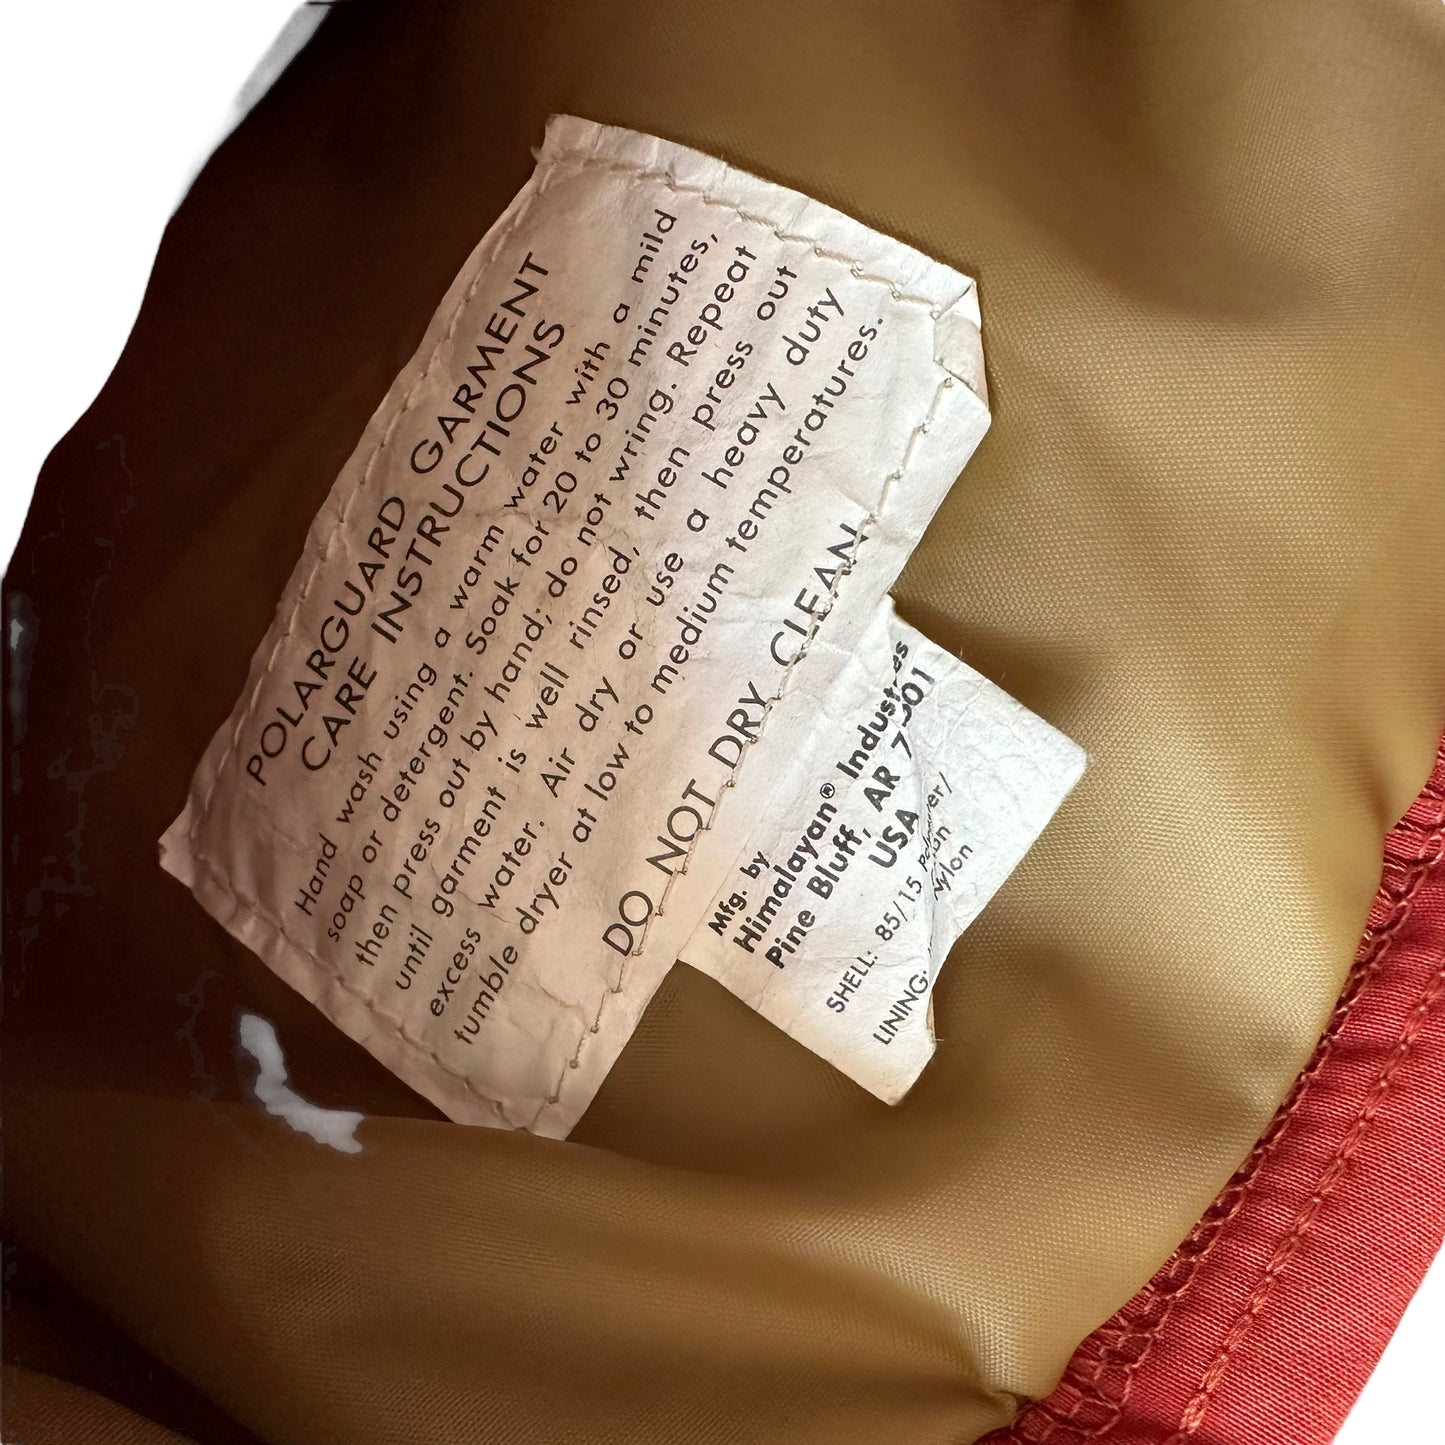 POLARGUARD GARMENT
CARE INSTRUCTIONS
Hand wash using a warm water with a mild
soap or detergent. Soak for 20 to 30 minutes,
then press out by hand; do not wring. Repeat
until garment is well rinsed, then press out
excess water. Air dry or use a heavy duty
tumble dryer at low to medium temperatures.
DO NOT DRY CLEAN
Mfg. by
Himalayan® Industries
Pine Bluff, AR
USA
SHELL: 85/15
LINING: Nylon